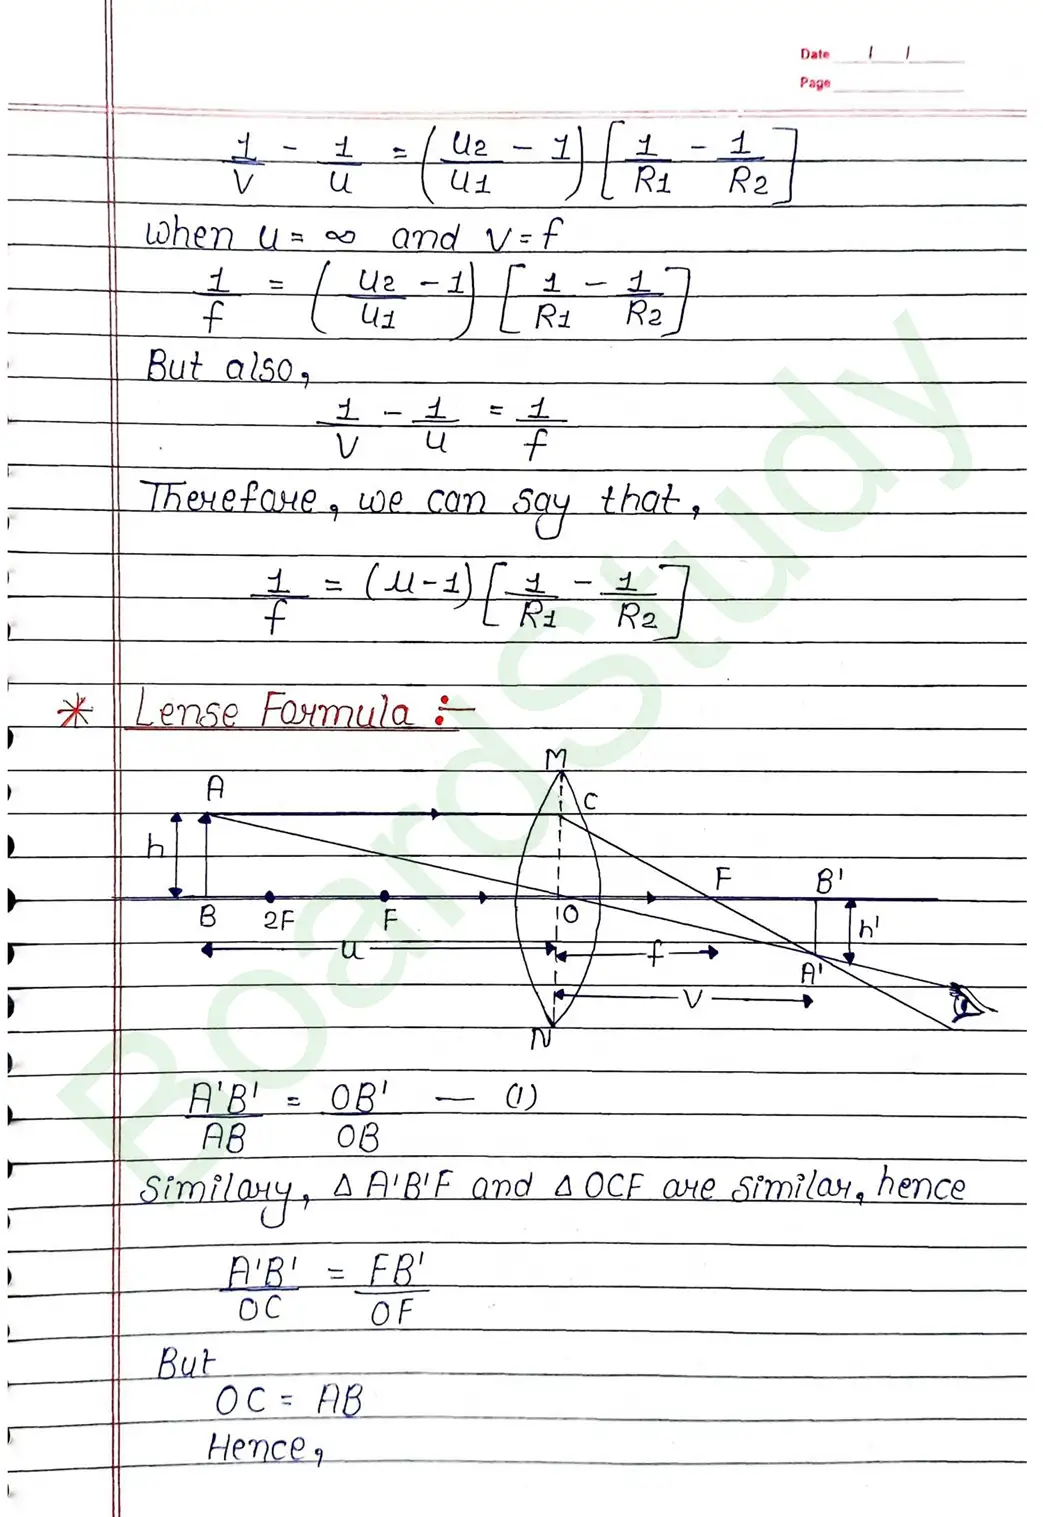 Date / /
Page
1/V - 1/u = (u2/u1 - 1) [1/R1 - 1/R2]
when u = ∞ and v = f
1/f = (u2/u1 - 1) [1/R1 - 1/R2]
But also,
1/V - 1/u = 1/f
Therefore, we can say that,
1/f = (u-1) [1/R1 - 1/R2]
* Lense Formula :-
M
A
C
h
F
B'
B
2F
F
O
h'
u
f
A'
V
N
A'B'/AB = OB'/OB — (1)
Similary, Δ A'B'F and Δ OCF are similar, hence
A'B'/OC = FB'/OF
But
OC = AB
Hence,
BoardStudy